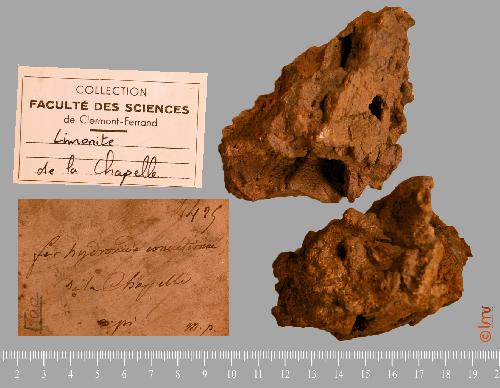 COLLECTION
FACULTÉ DES SCIENCES
de Clermont-Ferrand
Limonite
de la Chapelle
fer hydroxidé concretionné
de la Chapelle
m. p.
© lmv
2 3 4 5 6 7 8 9 10 11 12 13 14 15 16 17 18 19 2